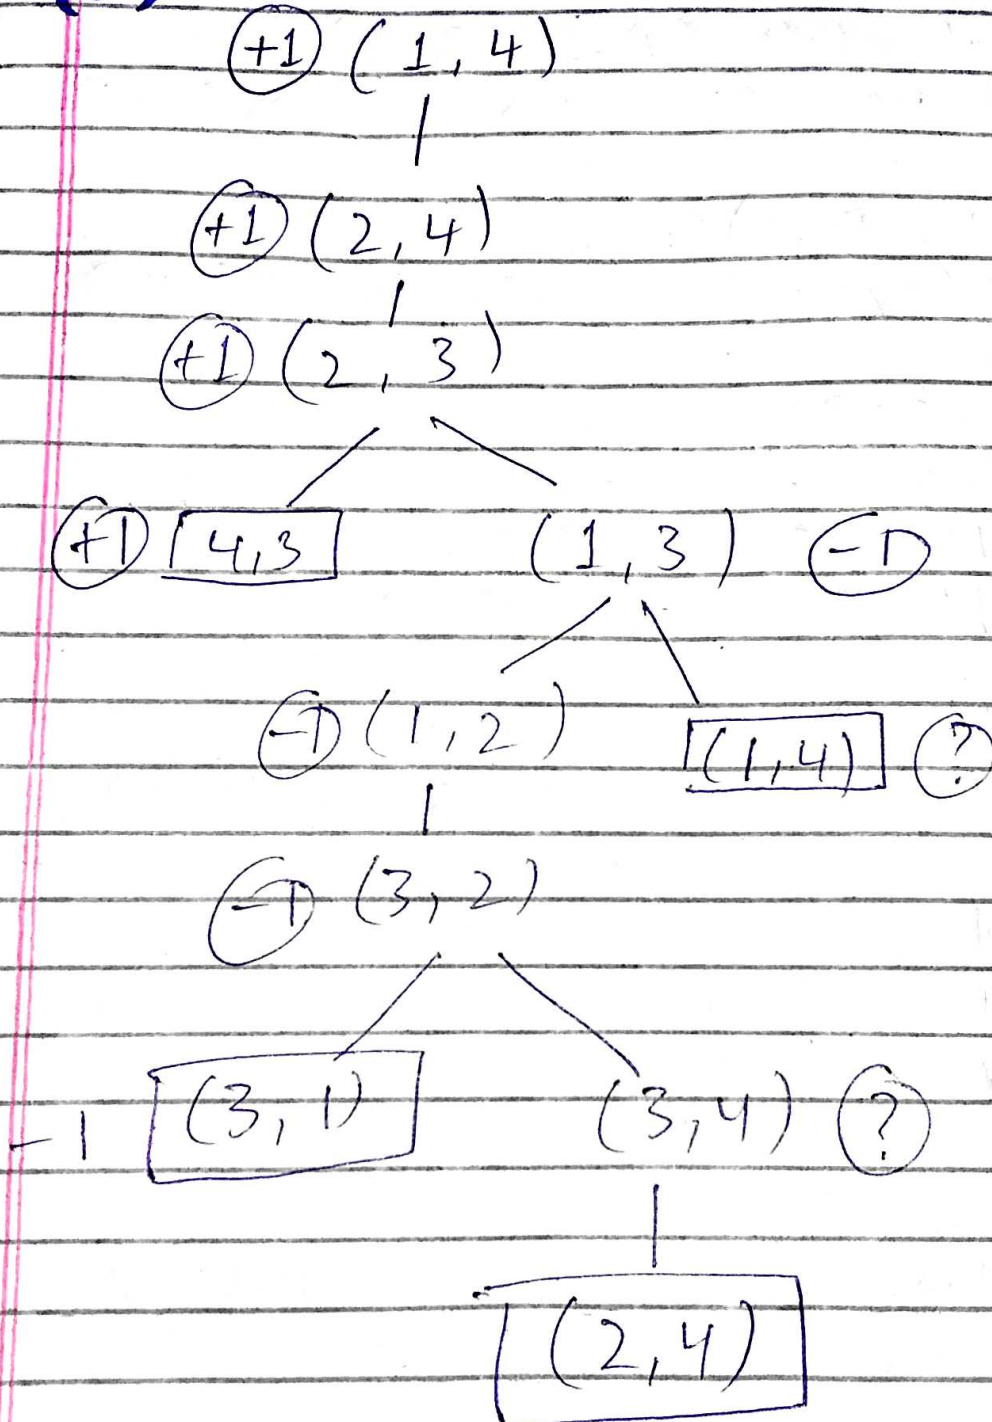 +1 (1, 4)
+1 (2, 4)
+1 (2, 3)
+1 4,3 (1, 3) -1
-1 (1, 2) (1,4) ?
-1 (3, 2)
-1 (3, 1) (3, 4) ?
(2, 4)